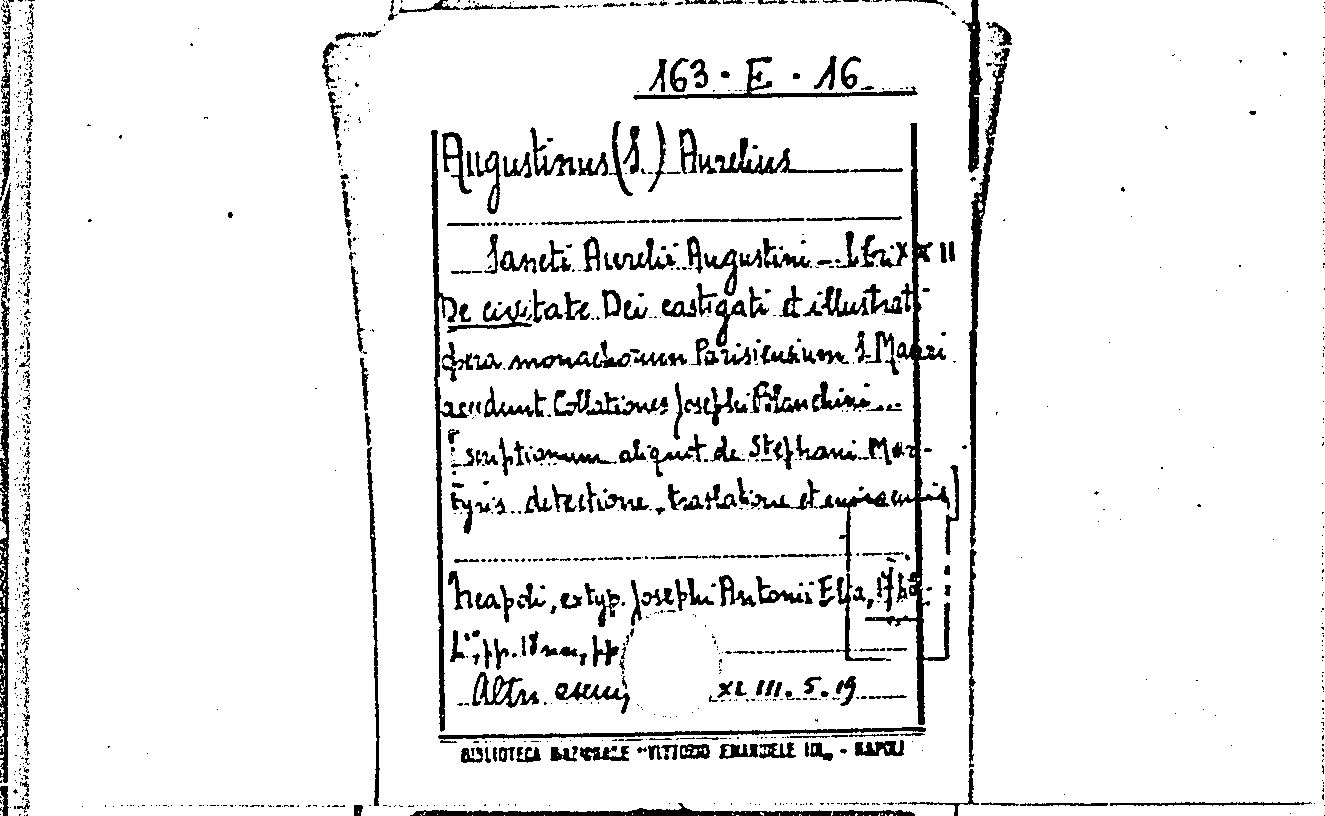 163 · E · 16
Augustinus (S.) Aurelius
Sancti Aurelii Augustini – Libri XXII
De civitate Dei castigati et illustrati
opera monachorum Parisiensium S. Mauri
accedunt Collationes Josephi Blanchini...
scriptionum aliquot de Stephani Mar-
tyris detectione, traslatione et
Neapoli, ex typ. Josephi Antonii Elia,
pp. 18 nn., pp
Altri esem XLIII. 5. 19
BIBLIOTECA NAZIONALE "VITTORIO EMANUELE III" - NAPOLI